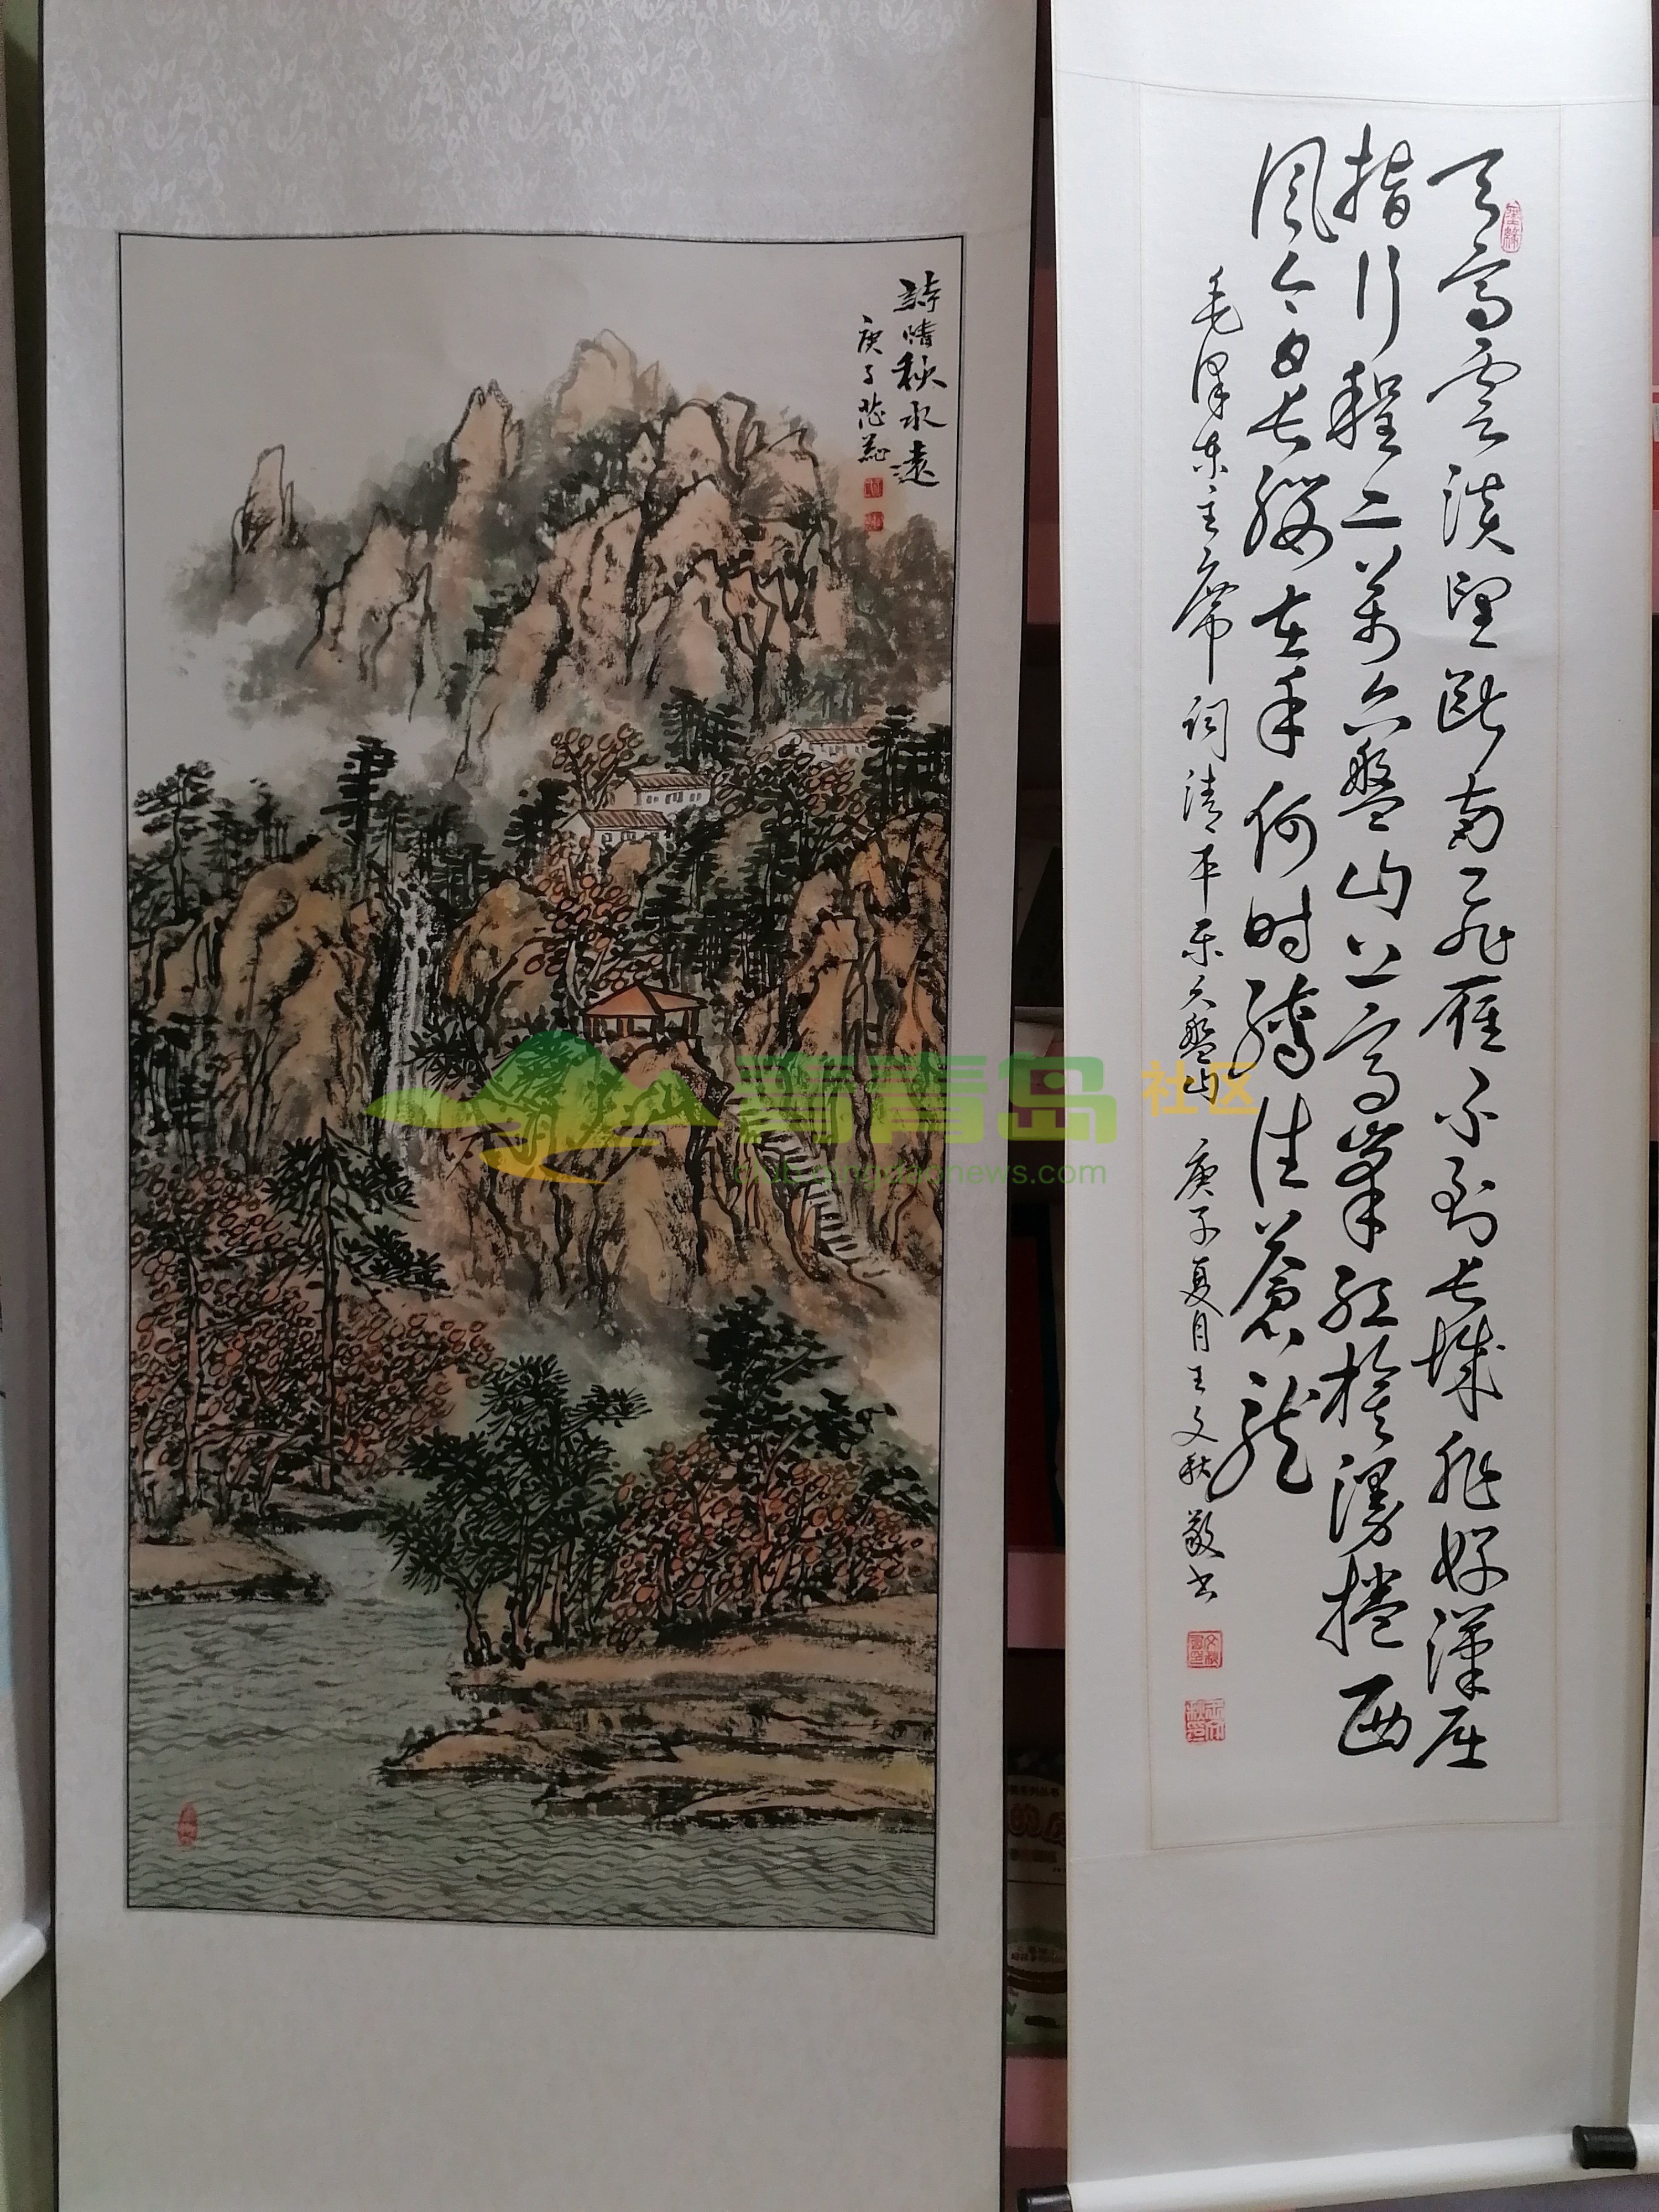 天高雲淡望斷南飛雁不到長城非好漢屈
指行程二萬六盤山上高峯紅旗漫捲西
風今日長纓在手何時縛住蒼龍
毛澤東主席詞清平樂六盤山 庚子夏月王文秋敬書
詩情秋水遠
庚子
青青岛 社区
club.qingdaonews.com